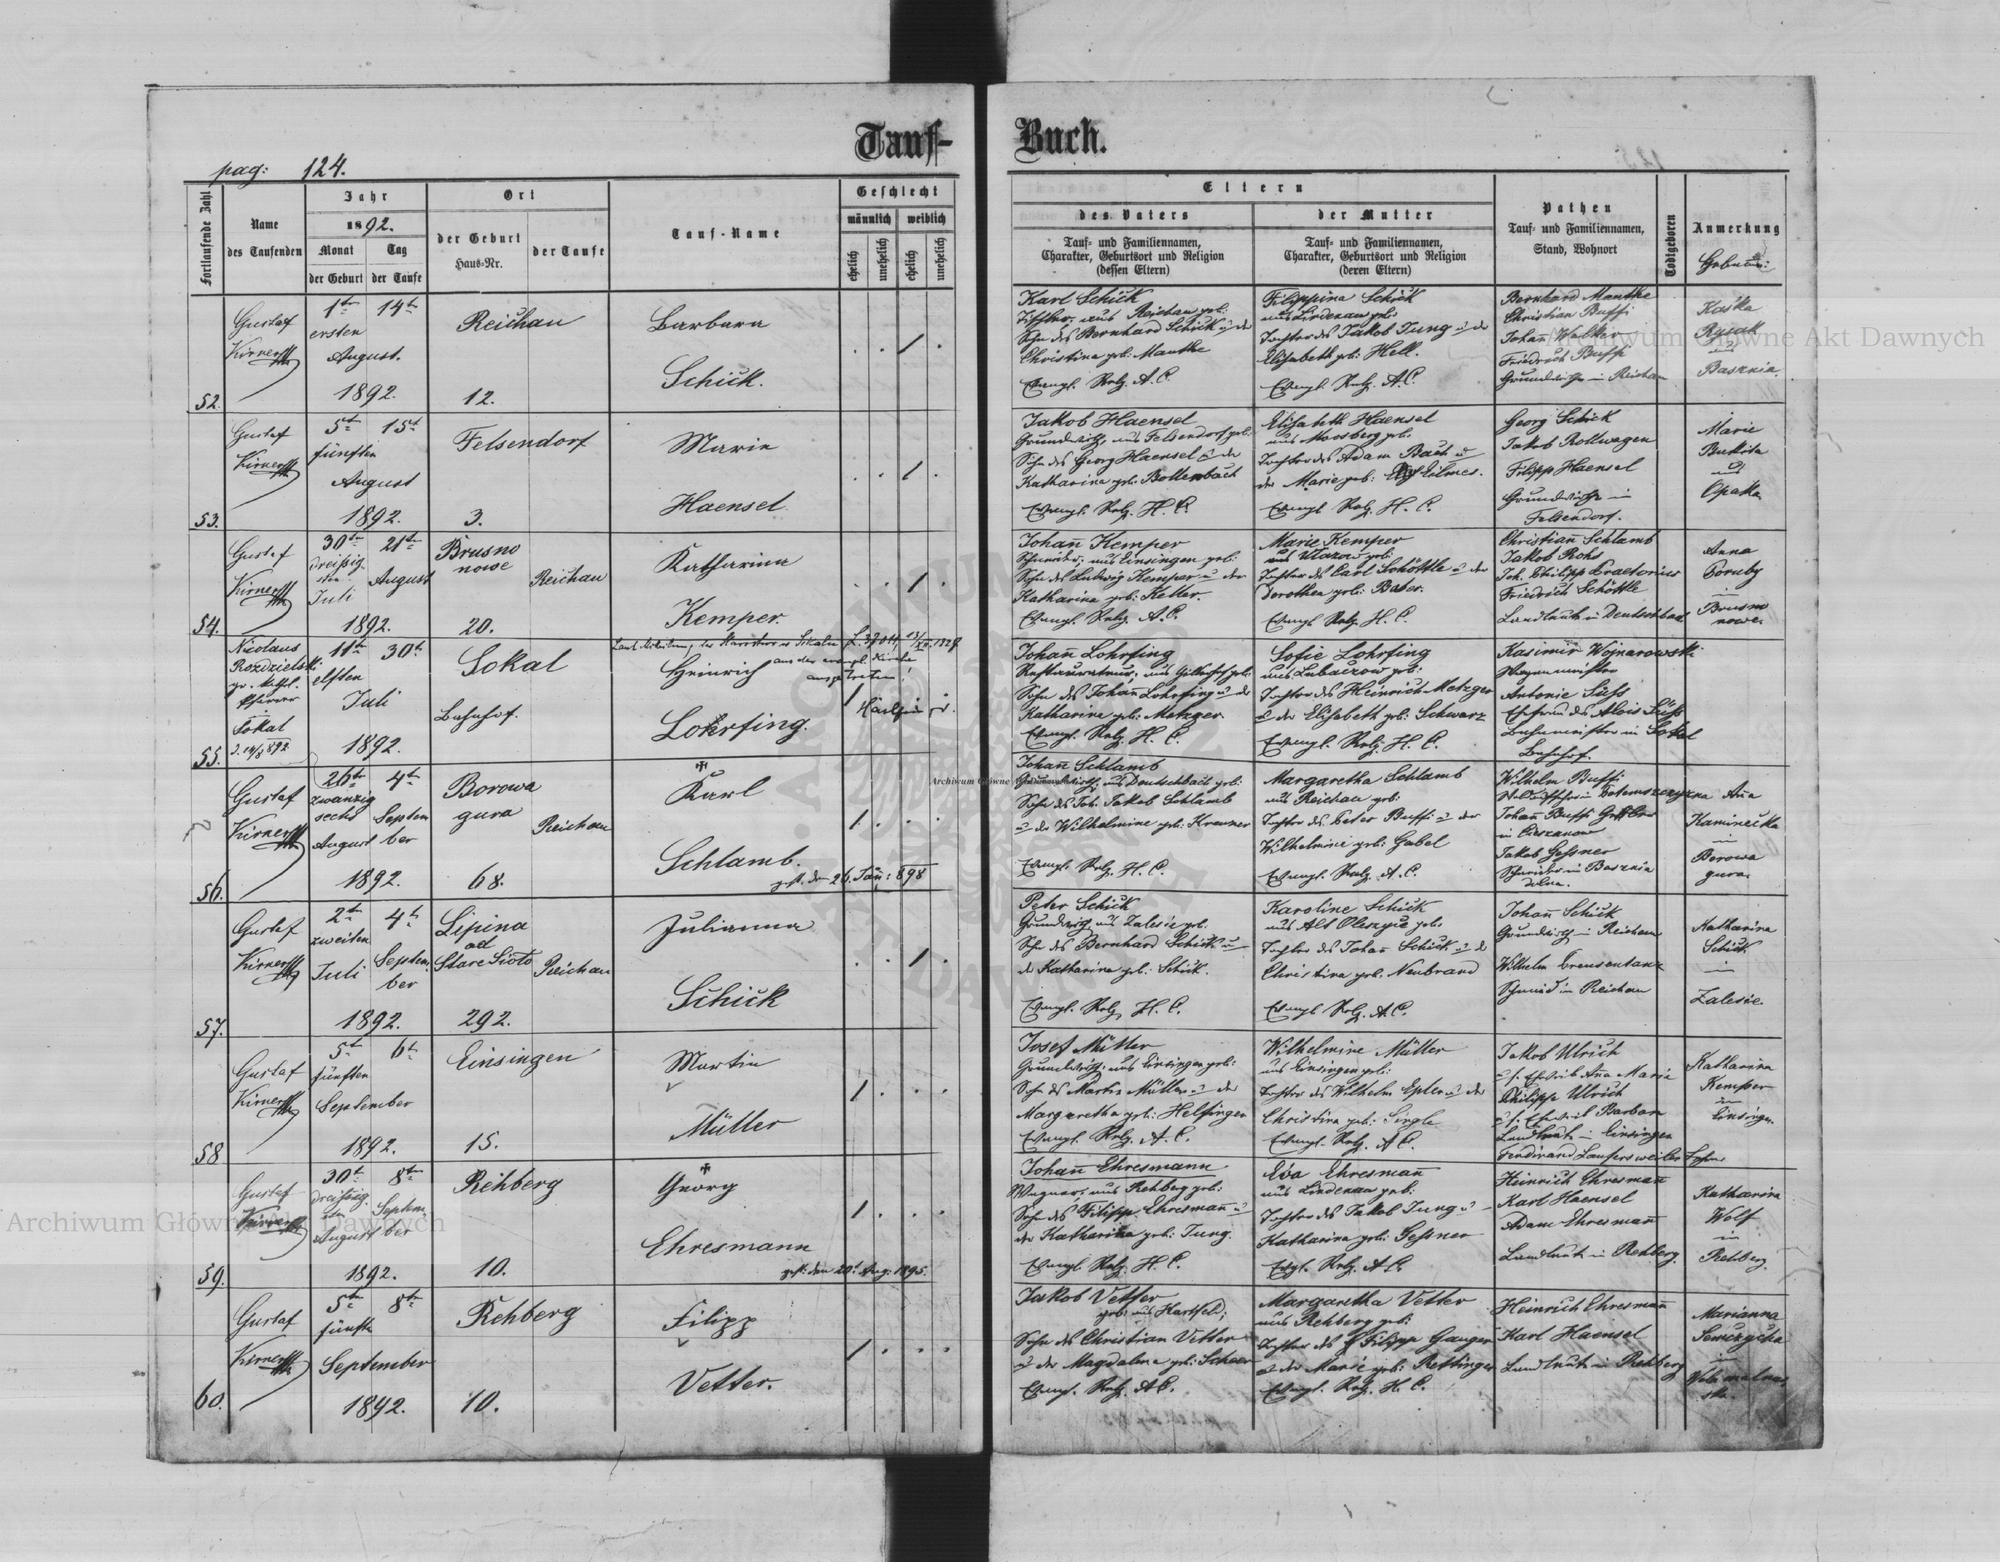 Tauf-
Buch.
pag: 124.
Fortlaufende Zahl
Name
des Taufenden
Jahr
1892.
Monat
Tag
der Geburt
der Taufe
Ort
der Geburt
Haus-Nr.
der Taufe
Tauf-Name
Geschlecht
männlich
weiblich
ehelich
unehelich
ehelich
unehelich
Eltern
des Vaters
Tauf- und Familiennamen,
Charakter, Geburtsort und Religion
(dessen Eltern)
der Mutter
Tauf- und Familiennamen,
Charakter, Geburtsort und Religion
(deren Eltern)
Pathen
Tauf- und Familiennamen,
Stand, Wohnort
Todtgeboren
Anmerkung
52.
Gustaf
1ten 14ten
ersten
August.
1892.
Reichau
12.
Barbara
Schick.
Karl Schick
aus Reichau geb:
Sohn des Bernhard Schick u der
Christina geb: Manthe
Evangl. Relg. A.C.
Filippina Schick
aus Lindenau geb:
Tochter des Jakob Jung u der
Elisabeth geb: Hell.
Evangl. Relg. A.C.
Bernhard Manthe
Christian Buffi
Johan̄ Walker
Friedrich Buffi
Grundwirthe in Reichau
Kaśka
Rysak
aus
Basznia.
53.
Gustaf
5ten 15ten
fünften
August
1892.
Felsendorf
3.
Maria
Haensel
Jakob Haensel
Grundwirth, aus Felsendorf geb:
Sohn des Georg Haensel u der
Katharina geb: Bottenbach
Evangl. Relg. H.C.
Elisabeth Haensel
aus Moosberg geb:
Tochter des Adam Bach u
der Marie geb:
Evangl. Relg. H.C.
Georg Schick
Jakob Rollwagen
Filipp Haensel
Grundwirthe in
Felsendorf.
Marie
Bukśta
aus
Opaka
54.
Gustaf
30ten 21ten
dreißig-
sten
Juli
August
1892.
Brusno
nowe
Reichau
20.
Katharina
Kemper.
Johan̄ Kemper
Schneider, aus Einsingen geb:
Sohn des Ludwig Kemper u der
Katharina geb: Keller.
Evangl. Relg. A.C.
Marie Kemper
Tochter des Carl Schöttle u der
Dorothea geb: Baber.
Evangl. Relg. H.C.
Christian̄ Schlamb
Jakob Rohs
Joh. Philipp Praetorius
Friedrich Schöttle
Landleute in Deutschbach
Anna
Poruby
in
Brusno
nowe.
55.
Nicolaus
Rozdzielski
gr. kathol.
Pfarrer
in
Sokal
11ten 30ten
elften
Juli
1892.
Sokal
Bahnhof.
aus der evangl. Kirche
ausgetreten!
Heinrich
Lohrfing.
Johan̄ Lohrfing
Restaurateur, aus Gillershof geb:
Sohn des Johan̄ Lohrfing u der
Katharina geb: Metzger.
Evangl. Relg. H.C.
Sofie Lohrfing
aus Lubaczow geb:
Tochter des Heinrich Metzger
u der Elisabeth geb: Schwarz
Evangl. Relg. H.C.
Kasimir Wojnarowski
Wagenmeister
Antonie Süss
Ehefrau des Alois Süss
Bahnmeister in Sokal
Bahnhof.
56.
Gustaf
26ten 4ten
zwanzig
sechs
August
Septem
ber
1892.
Borowa
gura
Reichau
68.
Karl
Schlamb.
gest. den 26. Jan: 898
Johan̄ Schlamb
Grundwirth, aus Deutschbach geb:
Sohn des Joh. Jakob Schlamb
u der Wilhelmine geb: Kreuner
Evangl. Relg. H.C.
Margaretha Schlamb
aus Reichau geb:
Tochter des Peter Buffi u der
Wilhelmine geb: Gabel
Evangl. Relg. A.C.
Wilhelm Buffi
Johan̄ Buffi
in Cieszanow
Jakob Gessner
in Basznia
dolna.
Ana
Kaminecka
in
Borowa
gura.
57.
Gustaf
2ten 4ten
zweiten
Juli
Septem
ber
1892.
Lipina
ad
Stare Sioło
Reichau
292.
Julianna
Schick
Peter Schick
Grundwirth aus Zalesie geb:
Sohn des Bernhard Schick u
der Katharina geb: Schick.
Evangl. Relg. H.C.
Karoline Schick
aus Alt Oleszyce geb:
Tochter des Johan̄ Schick u der
Christina geb: Neubrand
Evangl. Relg. A.C.
Johan̄ Schick
Grundwirth in Reichau
Wilhelm
Schmied in Reichau
Katharina
Schick
in
Zalesie.
58
Gustaf
5ten 6ten
fünften
September
1892.
Einsingen
15.
Martin
Müller
Josef Müller
Grundwirth, aus Einsingen geb:
Sohn des Martin Müller u der
Margaretha geb: Helfinger
Evangl. Relg. A.C.
Wilhelmine Müller
aus Einsingen geb:
Tochter des Wilhelm Epler u der
Christina geb: Single
Evangl. Relg. A.C.
Jakob Ulrich
u s. Eheweib Ana Maria
Philipp Ulrich
u s. Eheweib Barbara
Landleute in Einsingen
Ferdinand Laufersweiler
Katharina
Kemper
in
Einsingen
59.
Gustaf
30ten 8ten
dreißig
sten
August
Septem
ber
1892.
Rehberg
10.
Georg
Ehresmann
gest. den 20t Aug. 1895.
Johan̄ Ehresmann
Wagner, aus Rehberg geb:
Sohn des Filipp Ehresman̄ u
der Katharina geb: Jung.
Evangl. Relg. H.C.
Eva Ehresman̄
aus Lindenau geb:
Tochter des Jakob Jung u
Katharina geb: Gessner
Evgl. Relg. A.C.
Heinrich Ehresman̄
Karl Haensel
Adam Ehresman̄
Landleute in Rehberg.
Katharina
Wolf
in
Rehberg.
60.
Gustaf
5ten 8ten
fünften
September
1892.
Rehberg
10.
Filipp
Vetter.
Jakob Vetter
geb: aus Hartfeld;
Sohn des Christian Vetter
u der Magdalena geb: Scherer
Evangl. Relg. A.C.
Margaretha Vetter
aus Rehberg geb:
Tochter des Filipp Ganger
u der Marie geb: Rettinger
Evangl. Relg. H.C.
Heinrich Ehresman̄
Karl Haensel
Landleute in Rehberg
Marianna
in
Archiwum Główne Akt Dawnych
Archiwum Główne Akt Dawnych